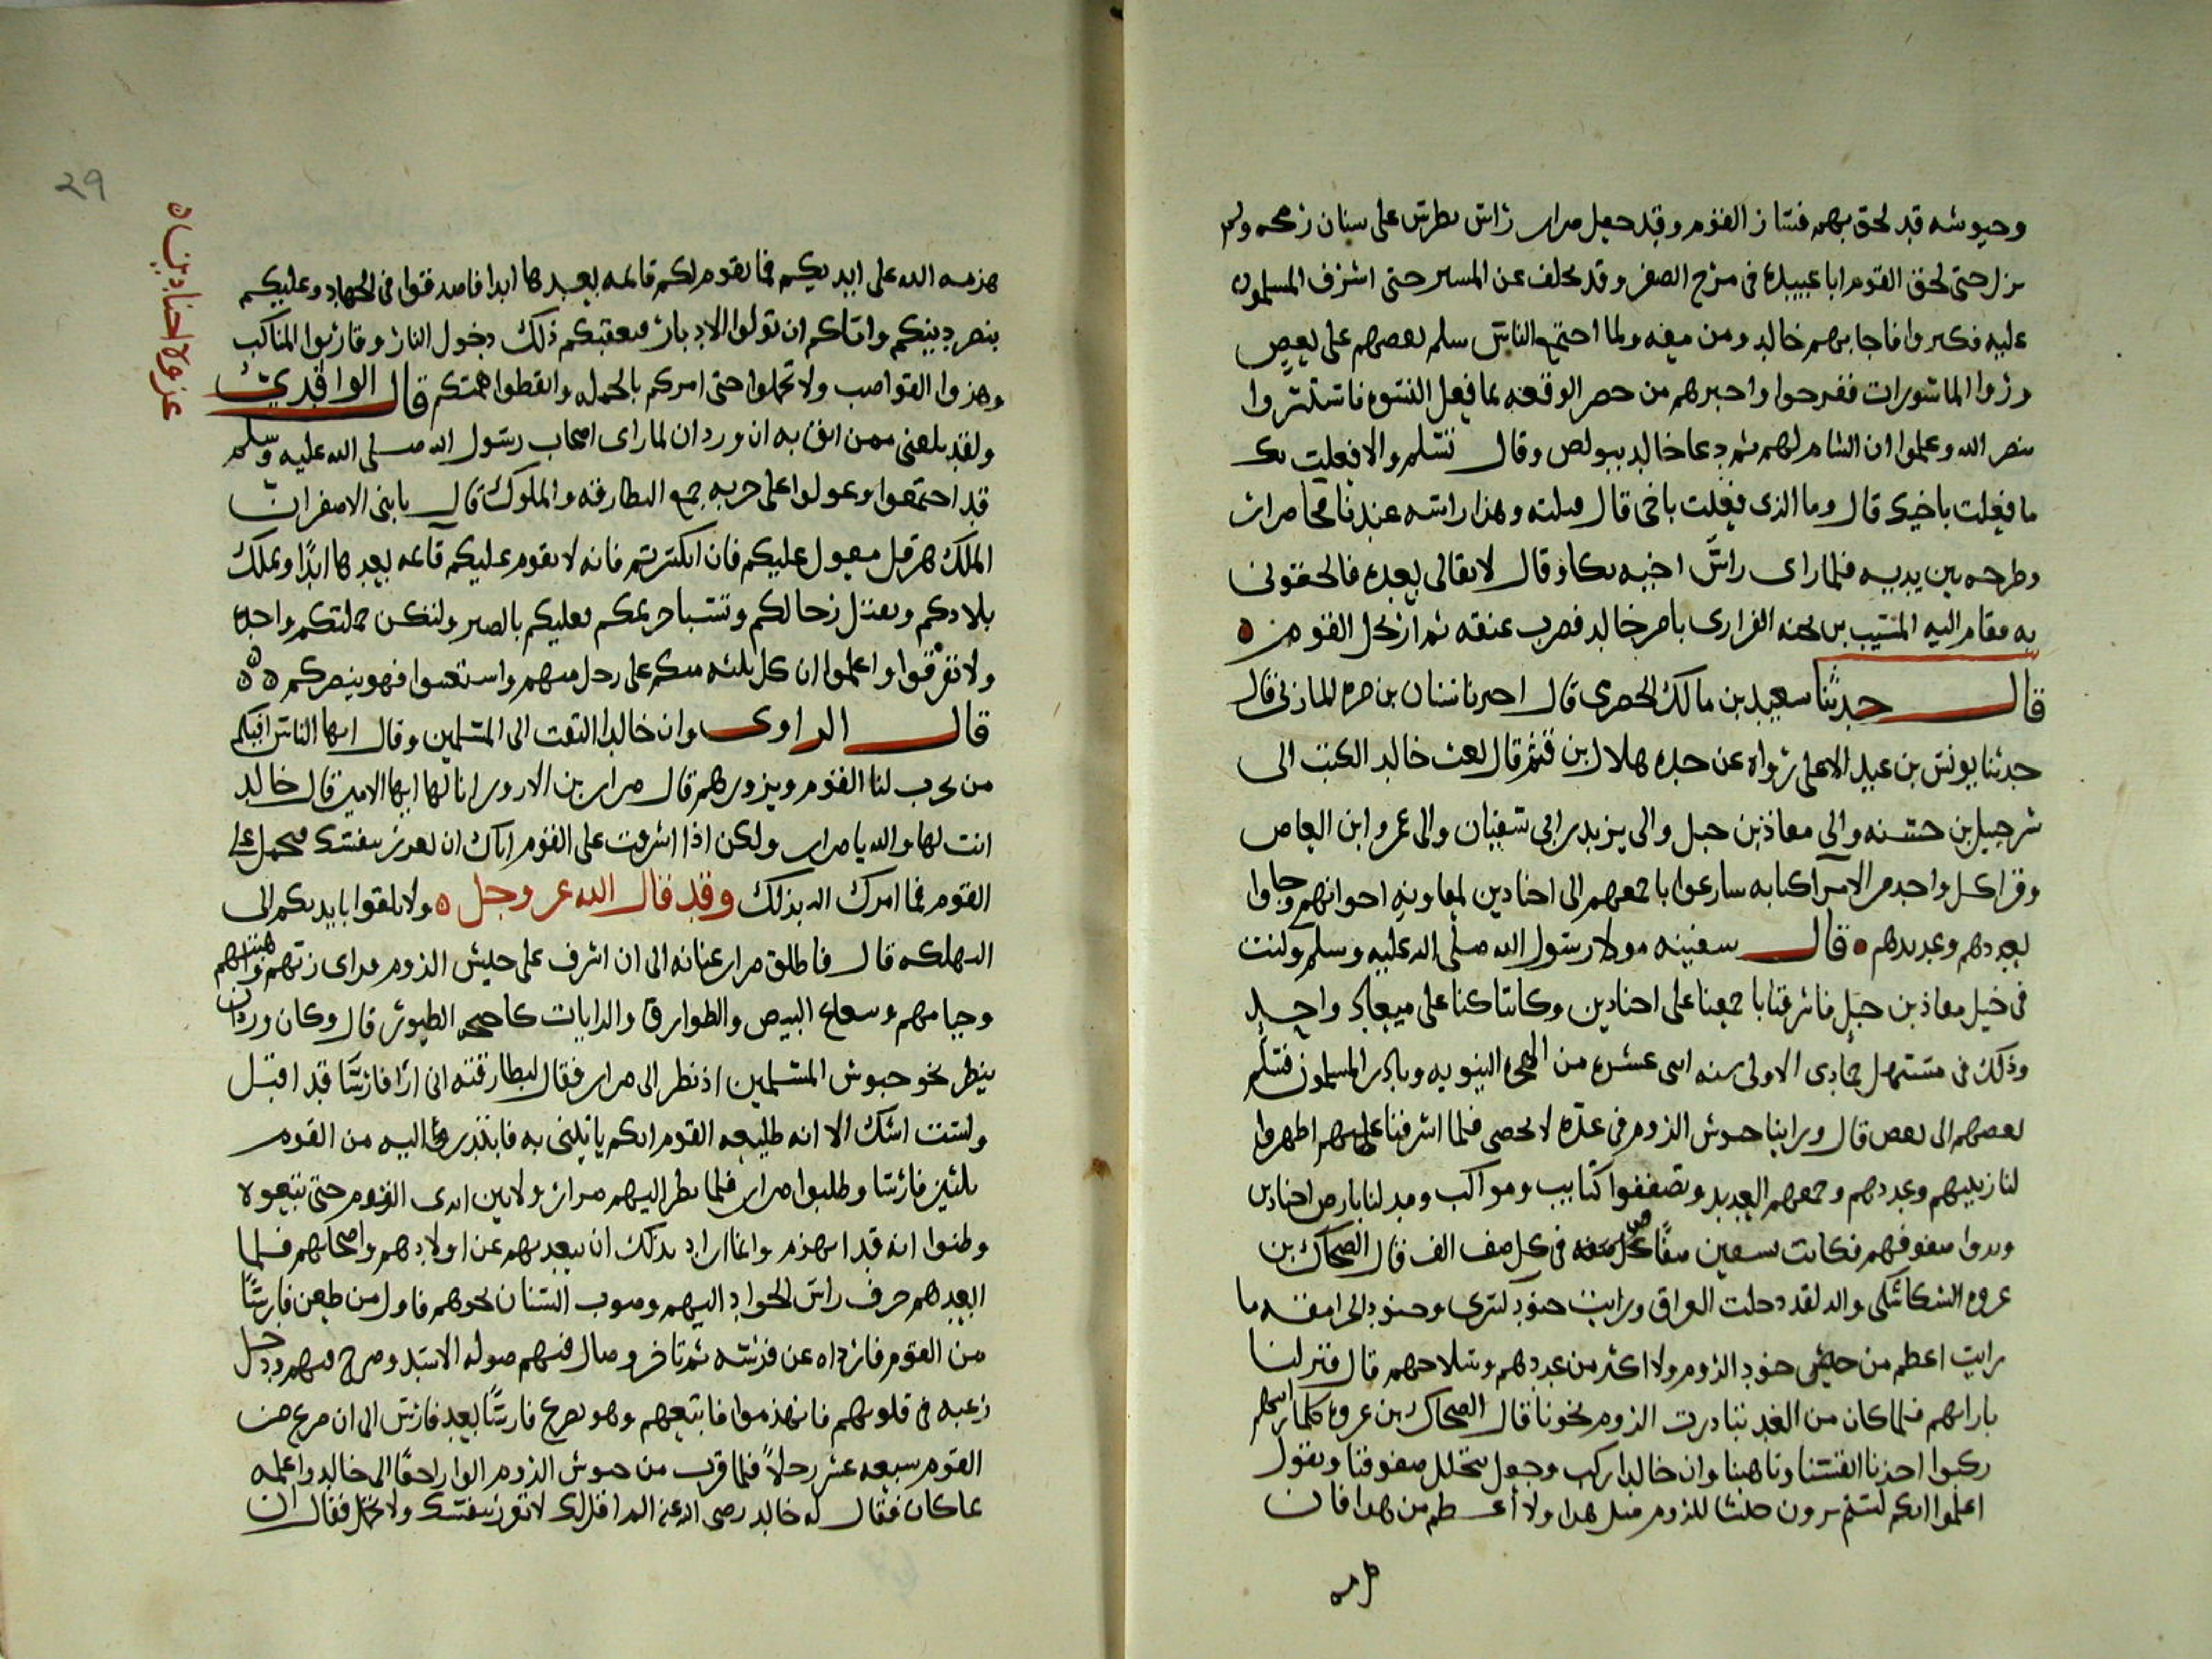 وجيوشه قد لحق بهم فسار القوم وقد جعل ضرار راس بطرس على سنان رمحه ولم
يزل حتى لحق القوم ابا عبيدة في مرج الصفر وقد تخلف عن المسير حتى اشرف المسلمون
عليه فكبروا فاجابهم خالد ومن معه ولما اجتمع الناس سلم بعضهم على بعض
وراوا الماسورات ففرحوا واخبرهم من حضر الوقعه بما فعل النسوه فاستبشروا
بنصر الله وعلموا ان الشام لهم ثم دعا خالد ببولص وقال تسلم والا فعلت بك
ما فعلت باخيك قال وما الذي فعلت باخي قال قتلته وهذا راسه عندنا فجا ضرار
وطرحه بين يديه فلما راى راس اخيه بكا وقال لا بقا لي بعده فالحقوني
به فقام اليه المسيب بن نجبه الفزاري بامر خالد فضرب عنقه ثم ارتحل القوم ه
قال حدثنا سعيد بن مالك قال اخبرنا سنان بن المازني قال
حدثنا يونس بن عبد الاعلى رواه عن جده هلال بن قال بعث خالد الكتب الى
شرحبيل بن حسنه والى معاذ بن جبل والى يزيد بن ابي سفيان والى عمرو ابن العاص
وقرا كل واحد من الامرا كتابه سارعوا باجمعهم الى اجنادين لمعاونه اخوانهم وجاوا
بعددهم وعديدهم ه قال سفينه مولا رسول الله صلى الله عليه وسلم وكنت
في خيل معاذ بن جبل فاشرفنا باجمعنا على اجنادين وكاننا كنا على ميعاد واحد
وذلك في مستهل جمادى الاولى سنه اثنى عشره من الهجره النبويه وبادر المسلمون فسلم
بعضهم الى بعض قال وراينا جيوش الروم في عدة لا تحصى فلما اشرفنا عليهم اظهروا
لنا زينتهم وعددهم وجمعهم العديد وتصففوا كتايب ومواكب ومد لنا بارض اجنادين
ومدوا صفوفهم فكانت تسعين صفا في كل صف الف قال الضحاك بن
عروه والله لقد دخلت العراق ورايت جنود كسرى وجنود الجرامقه ما
رايت اعظم من جيش جنود الروم ولا اكثر من عددهم وسلاحهم قال فنزلنا
بازائهم فلما كان من الغد تبادرت الروم نحونا قال الضحاك بن عروه فلما رايناهم
ركبوا اخذنا انفسنا وتاهبنا وان خالدا ركب وجعل يتخلل صفوفنا ويقول
اعلموا انكم لستم ترون جيشا للروم مثل هذا ولا اعظم من هذا فان
هزمه الله على ايديكم فما تقوم لكم قائمه بعدها ابدا فاصدقوا في الجهاد وعليكم
بنصر دينكم واياكم ان تولوا الادبار فيعقبكم ذلك دخول النار وقاربوا المناكب
وهزوا القواضب ولا تحملوا حتى امركم بالحمله وايقظوا هممكم قال الواقدي
ولقد بلغني ممن اثق به ان وردان لما راى اصحاب رسول الله صلى الله عليه وسلم
قد اجتمعوا وعولوا على حربه جمع البطارقه والملوك قال يا بني الاصفر ان
الملك هرقل معول عليكم فان انكسرتم فانه لا تقوم عليكم قائمه بعدها ابدا وتملك
بلادكم وتقتل رجالكم وتسبا حريمكم فعليكم بالصبر ولتكن حملتكم واحده
ولا تفرقوا واعلموا ان كل ثلثه منكم على رجل منهم واستعينوا فهو ينصركم ه ه
قال الراوي وان خالدا التفت الى المسلمين وقال ايها الناس ايكم
من يحرب لنا القوم ويزورهم قال ضرار بن الازور انا لها ايها الامير قال خالد
انت لها والله يا ضرار ولكن اذا اشرفت على القوم اياك ان تغرر بنفسك فتحمل على
القوم فما امرك الله بذلك وقد قال الله عز وجل ه ولا تلقوا بايديكم الى
التهلكه قال فاطلق ضرار عنانه الى ان اشرف على جيش الروم فراى زيهم وهيئتهم
وخيامهم وشعاع البيض والطوارق والرايات كاجنحه الطيور قال وكان وردان
ينظر نحو جيوش المسلمين اذ نظر الى ضرار فقال لبطارقته اني ارى فارسا قد اقبل
ولست اشك الا انه طليعه القوم ايكم ياتيني به فابتدر اليه من القوم
ثلثين فارسا وطلبوا ضرار فلما نظر اليهم ضرار ولا بين ايدي القوم حتى تبعوه
وظنوا انه قد انهزم وانما اراد بذلك ان يبعدهم عن اولادهم واصحابهم فلما
ابعدهم حرف راس الجواد اليهم وصوب السنان نحوهم فاول من طعن فارسا
من القوم فارداه عن فرسه ثم تاخر وصال فيهم صوله الاسد وصرخ فيهم ودخل
رعبه في قلوبهم فانهزموا فاتبعهم وهو يصرع فارسا بعد فارس الى ان صرع من
القوم سبعه عشر رجلا فلما قرب من جيوش الروم الوا راجعا الى خالد واعلمه
بما كان فقال له خالد رضي الله عنه الم اقل لك لا تغرر بنفسك ولا تحمل فقال ان